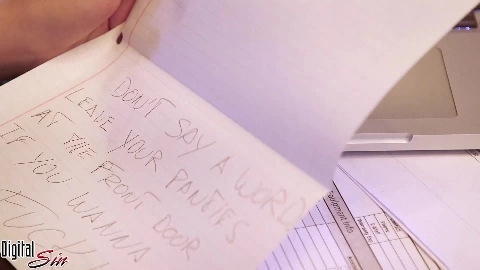 DON'T SAY A WORD
LEAVE YOUR PANTIES
AT THE FRONT DOOR
IF YOU WANNA
FUCK!
Digital
Sin